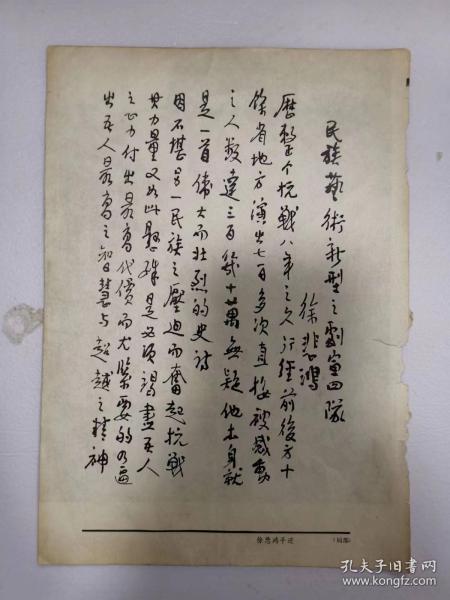 民族艺術新型之劇宣四隊
徐悲鴻
歷整个抗戰八年之久行徑前後方十
餘省地方演出七百多次直接被感動
之人数達三百幾十萬無疑他本身就
是一首偉大而壯烈的史詩
因不堪另一民族之壓迫而奮起抗戰
其力量又如此懸殊是必須竭盡吾人
之心力付出最高代價而尤緊要的乃逼
出吾人最高之智慧与超越之精神
徐悲鸿手迹
(局部)
孔夫子旧书网
www.kongfz.com